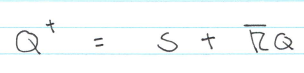 Q⁺ = S + R̅Q